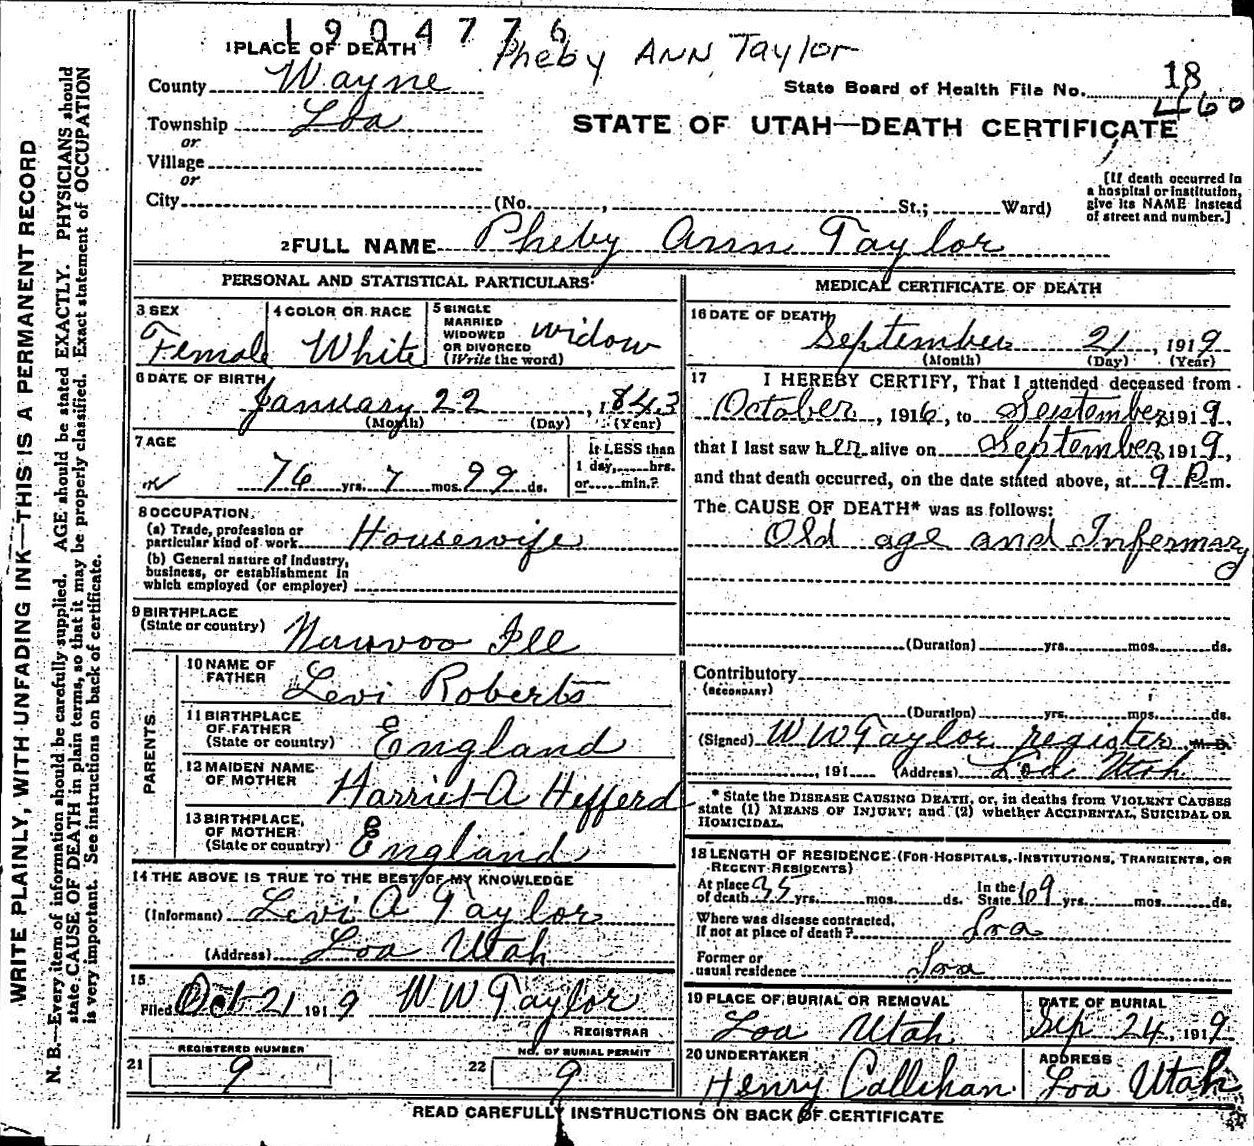 1904776
1 PLACE OF DEATH Pheby ANN Taylor
County Wayne
State Board of Health File No. 18
460
Township Loa
or
STATE OF UTAH—DEATH CERTIFICATE
Village
or
City (No. , St.; Ward)
[If death occurred in
a hospital or institution,
give its NAME instead
of street and number.]
2 FULL NAME Pheby Ann Taylor
PERSONAL AND STATISTICAL PARTICULARS
3 SEX
Female
4 COLOR OR RACE
White
5 SINGLE
MARRIED
WIDOWED
OR DIVORCED
(Write the word)
widow
6 DATE OF BIRTH
January 22, 1843
(Month) (Day) (Year)
7 AGE
76 yrs. 7 mos. 99 ds.
If LESS than
1 day, hrs.
or min.?
8 OCCUPATION
(a) Trade, profession or
particular kind of work Housewife
(b) General nature of industry,
business, or establishment in
which employed (or employer)
9 BIRTHPLACE
(State or country) Nauvoo Ill
PARENTS
10 NAME OF
FATHER Levi Roberts
11 BIRTHPLACE
OF FATHER
(State or country) England
12 MAIDEN NAME
OF MOTHER Harriet A Hefferd
13 BIRTHPLACE,
OF MOTHER
(State or country) England
14 THE ABOVE IS TRUE TO THE BEST OF MY KNOWLEDGE
(Informant) Levi A Taylor
(Address) Loa Utah
15
Filed Oct 21 1919 W W Taylor
REGISTRAR
21 REGISTERED NUMBER
9
22 NO. OF BURIAL PERMIT
9
MEDICAL CERTIFICATE OF DEATH
16 DATE OF DEATH
September 21, 1919
(Month) (Day) (Year)
17 I HEREBY CERTIFY, That I attended deceased from
October, 1916, to September 1919,
that I last saw her alive on September 1919,
and that death occurred, on the date stated above, at 9 P.m.
The CAUSE OF DEATH* was as follows:
Old age and Infermary
(Duration) yrs. mos. ds.
Contributory
(SECONDARY)
(Duration) yrs. mos. ds.
(Signed) W W Taylor register M.D.
, 191 (Address) Loa Utah
* State the DISEASE CAUSING DEATH, or, in deaths from VIOLENT CAUSES
state (1) MEANS OF INJURY; and (2) whether ACCIDENTAL, SUICIDAL OR
HOMICIDAL.
18 LENGTH OF RESIDENCE (FOR HOSPITALS, INSTITUTIONS, TRANSIENTS, OR
RECENT RESIDENTS)
At place
of death 35 yrs. mos. ds. In the
State 69 yrs. mos. ds.
Where was disease contracted,
if not at place of death? Loa
Former or
usual residence Loa
19 PLACE OF BURIAL OR REMOVAL
Loa Utah
DATE OF BURIAL
Sep 24, 1919
20 UNDERTAKER
Henry Callihan
ADDRESS
Loa Utah
READ CAREFULLY INSTRUCTIONS ON BACK OF CERTIFICATE
WRITE PLAINLY, WITH UNFADING INK—THIS IS A PERMANENT RECORD
N. B.—Every item of information should be carefully supplied. AGE should be stated EXACTLY. PHYSICIANS should
state CAUSE OF DEATH in plain terms, so that it may be properly classified. Exact statement of OCCUPATION
is very important. See instructions on back of certificate.